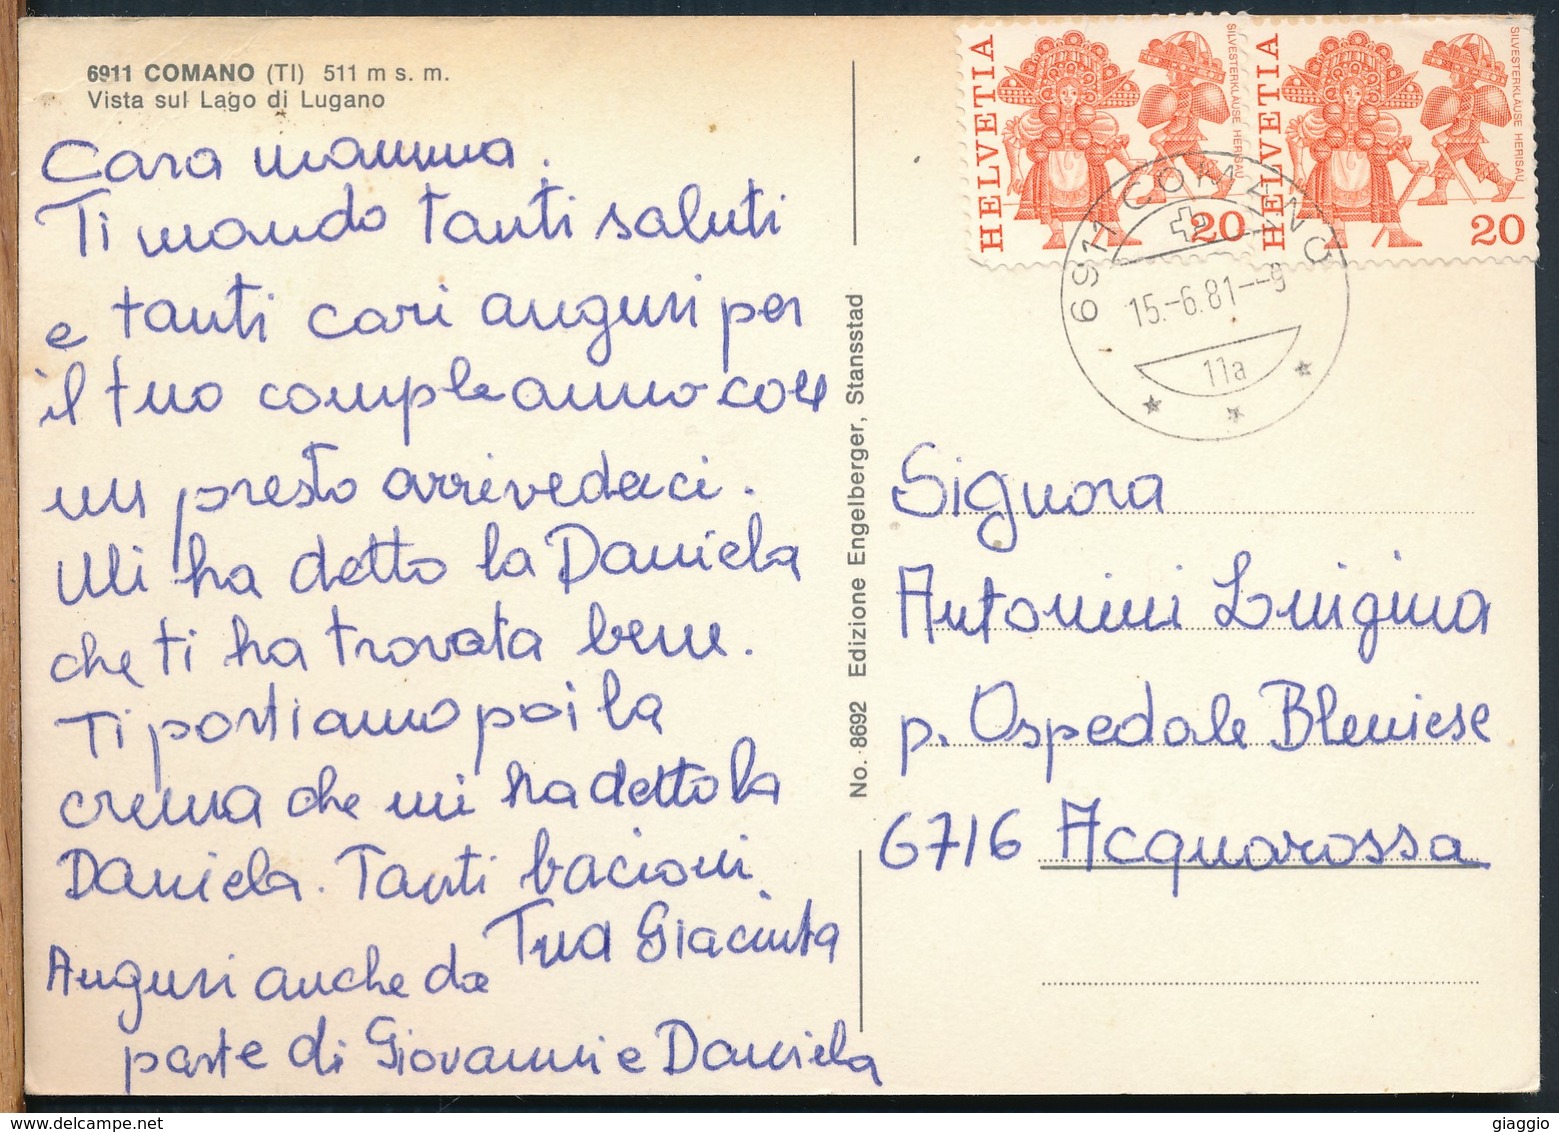 6911 COMANO (TI) 511 m s. m.
Vista sul Lago di Lugano
Cara mamma.
Ti mando tanti saluti
e tanti cari auguri per
il tuo compleanno con
un presto arrivederci.
Mi ha detto la Daniela
che ti ha trovata bene.
Ti portiamo poi la
crema che mi ha detto la
Daniela. Tanti bacioni
Tua Giacinta
Auguri anche da
parte di Giovanni e Daniela
No. 8692 Edizione Engelberger, Stansstad
HELVETIA
SILVESTERKLÄUSE HERISAU
20
HELVETIA
SILVESTERKLÄUSE HERISAU
20
6911 COMANO
15.-6.81--9
11a
Signora
Antonini Luigina
p. Ospedale Bleniese
6716 Acquarossa
giaggio